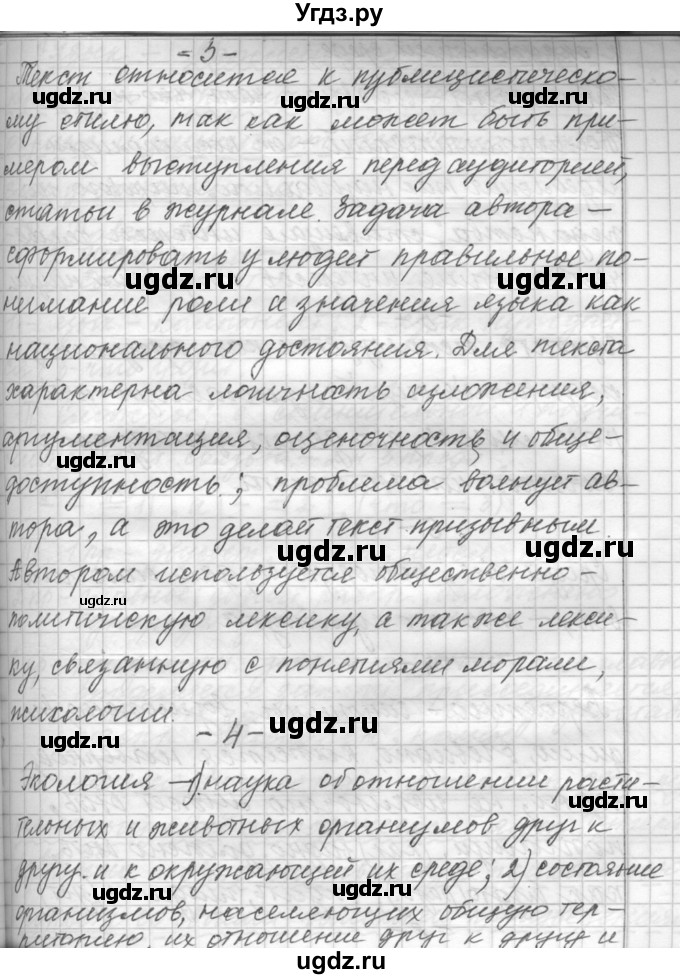 Угдз.ру
- 3 -
Текст относится к публицистическо-
му стилю, так как может быть при-
мером выступления перед аудиторией,
статьи в журнале. Задача автора -
сформировать у людей правильное по-
нимание роли и значения языка как
национального достояния. Для текста
характерна логичность изложения,
аргументация, оценочность и обще-
доступность; проблема волнует ав-
тора, а это делает текст призывным.
Автором используется общественно-
политическую лексику, а также лекси-
ку, связанную с понятиями морали,
психологии.
- 4 -
Экология - 1) наука об отношении расти-
тельных и животных организмов друг к
другу и к окружающей их среде; 2) состояние
организмов, населяющих общую тер-
риторию, их отношение друг к другу и